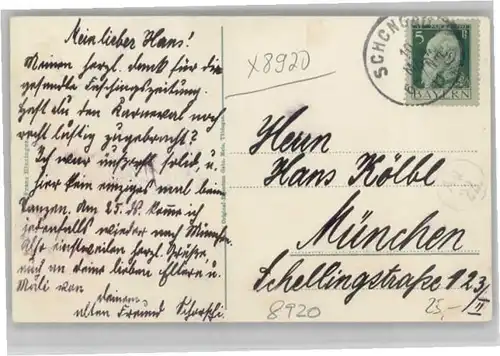 Mein lieber Hans!
Meinen herzl. Dank für die
gesandte Faschingszeitung.
Hast du den Karneval noch
recht lustig zugebracht?
Ich war solid u.
hier kein einziges mal beim
Tanzen. Am 25. komme ich
jedenfalls wieder nach München.
Ihr einstweilen herzl. Grüße
auch an deine lieben Eltern u.
von
deinem
alten Freund Schorschi.
X8920
SCHONG
5
BAYERN
Herrn
Hans Kölbl
München
Schellingstraße 123/II
8920
25,-